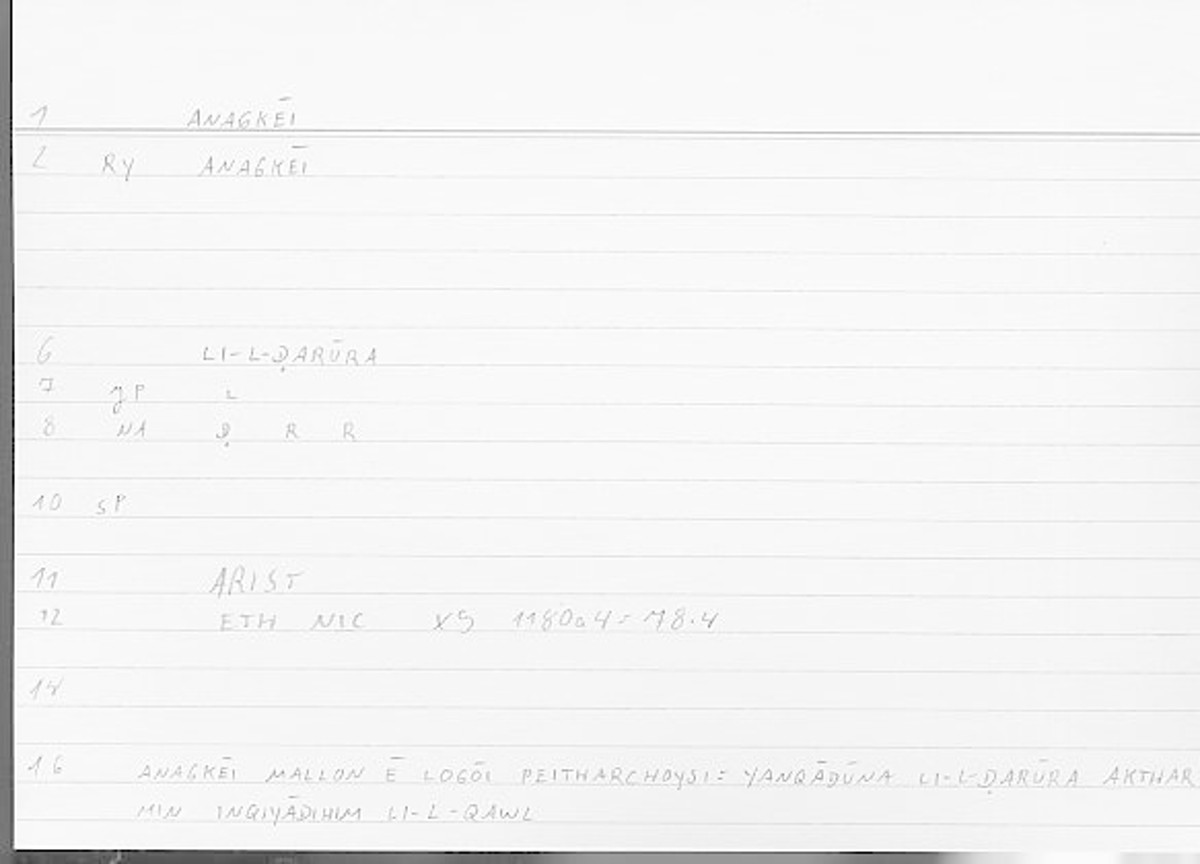 1 ANAGKĒI
2 RY ANAGKĒI
6 LI-L-ḌARŪRA
7 JP L
8 NA Ḍ R R
10 SP
11 ARIST
12 ETH NIC X9 1180a4 = 78.4
14
16 ANAGKĒI MALLON Ē LOGŌI PEITHARCHOYSI: YANQĀDŪNA LI-L-ḌARŪRA AKTHAR
MIN INQIYĀDIHIM LI-L-QAWL